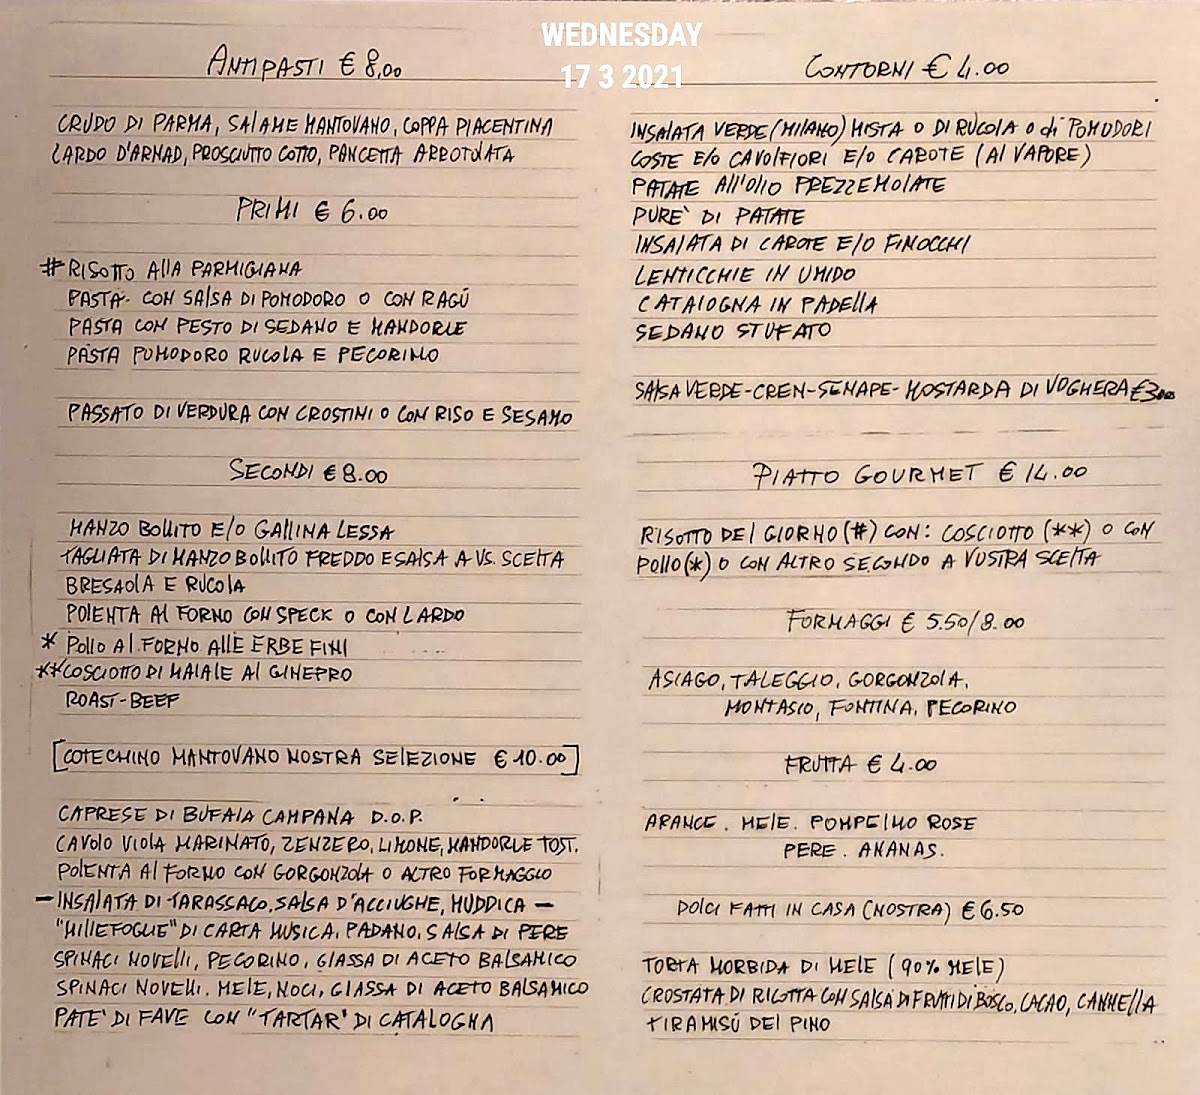 WEDNESDAY
17 3 2021
ANTIPASTI € 8,00
CRUDO DI PARMA, SALAME MANTOVANO, COPPA PIACENTINA
LARDO D'ARNAD, PROSCIUTTO COTTO, PANCETTA ARROTOLATA
PRIMI € 6.00
# RISOTTO ALLA PARMIGIANA
PASTA CON SALSA DI POMODORO O CON RAGÚ
PASTA CON PESTO DI SEDANO E MANDORLE
PASTA POMODORO RUCOLA E PECORINO
PASSATO DI VERDURA CON CROSTINI O CON RISO E SESAMO
SECONDI € 8.00
MANZO BOLLITO E/O GALLINA LESSA
TAGLIATA DI MANZO BOLLITO FREDDO E SALSA A VS. SCELTA
BRESAOLA E RUCOLA
POLENTA AL FORNO CON SPECK O CON LARDO
* POLLO AL FORNO ALLE ERBE FINI
** COSCIOTTO DI MAIALE AL GINEPRO
ROAST-BEEF
[COTECHINO MANTOVANO NOSTRA SELEZIONE € 10.00]
CAPRESE DI BUFALA CAMPANA D.O.P.
CAVOLO VIOLA MARINATO, ZENZERO, LIMONE, MANDORLE TOST.
POLENTA AL FORNO CON GORGONZOLA O ALTRO FORMAGGIO
— INSALATA DI TARASSACO, SALSA D'ACCIUGHE, MUDDICA —
"MILLEFOGLIE" DI CARTA MUSICA, PADANO, SALSA DI PERE
SPINACI NOVELLI, PECORINO, GLASSA DI ACETO BALSAMICO
SPINACI NOVELLI. MELE, NOCI, GLASSA DI ACETO BALSAMICO
PATE' DI FAVE CON "TARTAR" DI CATALOGNA
CONTORNI € 4.00
INSALATA VERDE (MILANO) MISTA O DI RUCOLA O di POMODORI
COSTE E/O CAVOLFIORI E/O CAROTE (AL VAPORE)
PATATE All'OLIO PREZZEMOLATE
PURE' DI PATATE
INSALATA DI CAROTE E/O FINOCCHI
LENTICCHIE IN UMIDO
CATALOGNA IN PADELLA
SEDANO STUFATO
SALSA VERDE-CREN-SENAPE-MOSTARDA DI VOGHERA €3.00
PIATTO GOURMET € 14.00
RISOTTO DEL GIORNO (#) CON: COSCIOTTO (**) O CON
POLLO (*) O CON ALTRO SECONDO A VOSTRA SCELTA
FORMAGGI € 5.50/8.00
ASIAGO, TALEGGIO, GORGONZOLA,
MONTASIO, FONTINA, PECORINO
FRUTTA € 4.00
ARANCE. MELE. POMPELMO ROSE
PERE. ANANAS.
DOLCI FATTI IN CASA (NOSTRA) € 6.50
TORTA MORBIDA DI MELE (90% MELE)
CROSTATA DI RICOTTA CON SALSA DI FRUTTI DI BOSCO, CACAO, CANNELLA
TIRAMISÚ DEL PINO